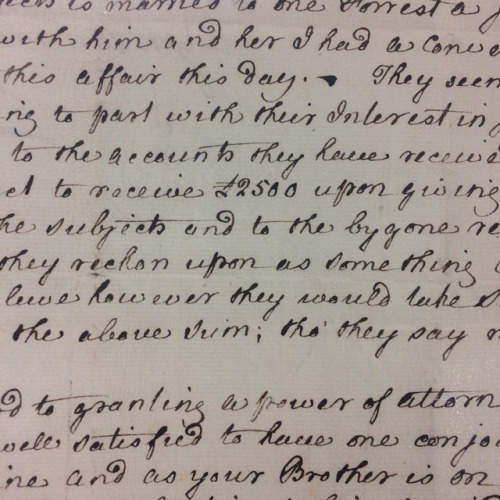 is married to one Forrest a
with him and her I had a Conve
this affair this day. - They seem
ng to part with their Interest in
to the accounts they have receive
ct to receive £2500 upon giving
he subjects and to the bygone re
they reckon upon as something
leive however they would take S
the above sum; tho' they say n
d to granting a power of attorn
well satisfied to have one conjo
ine and as your Brother is on